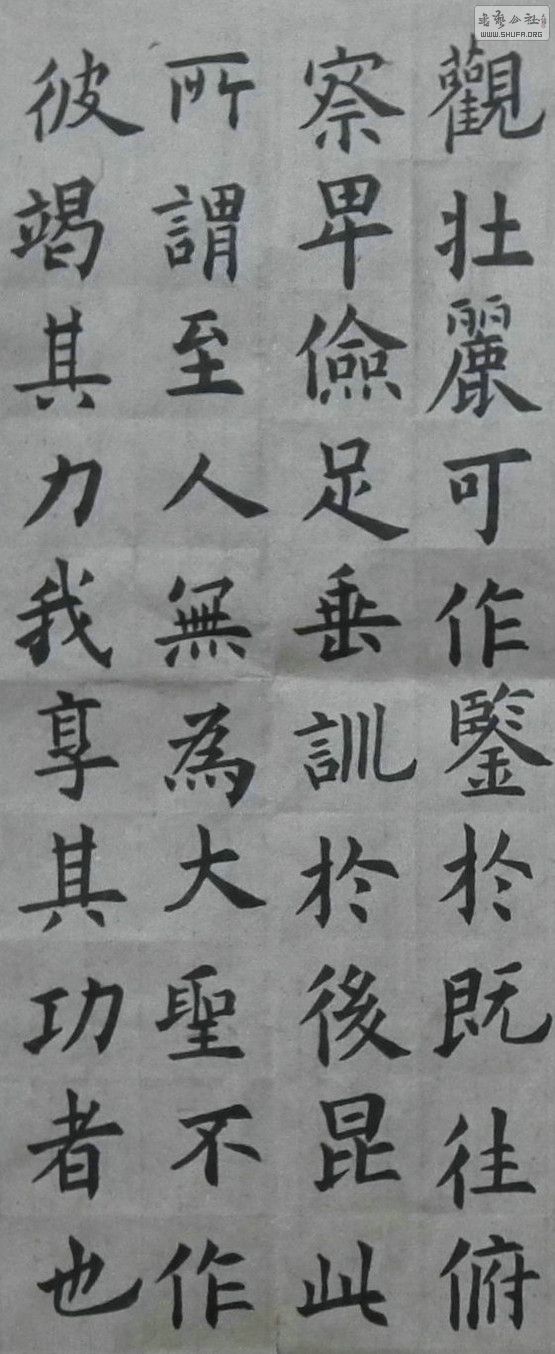 觀壯麗可作鑒於既往俯
察卑儉足垂訓於後昆此
所謂至人無為大聖不作
彼竭其力我享其功者也
书艺公社
WWW.SHUFA.ORG